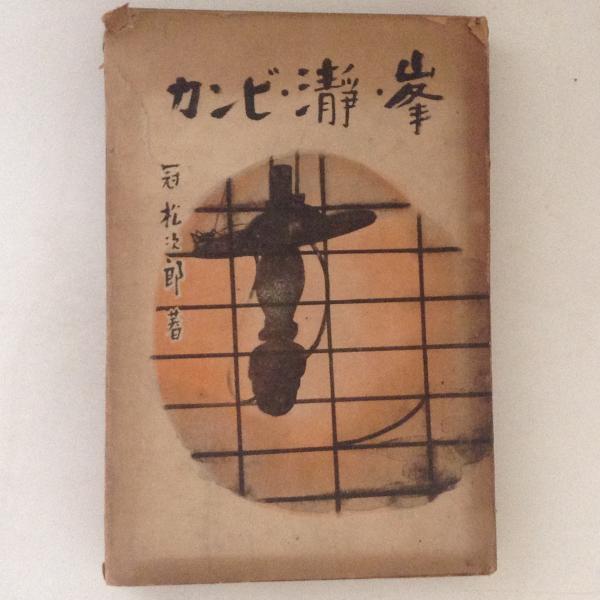 峯・瀞・ビンカ
冠松次郎著